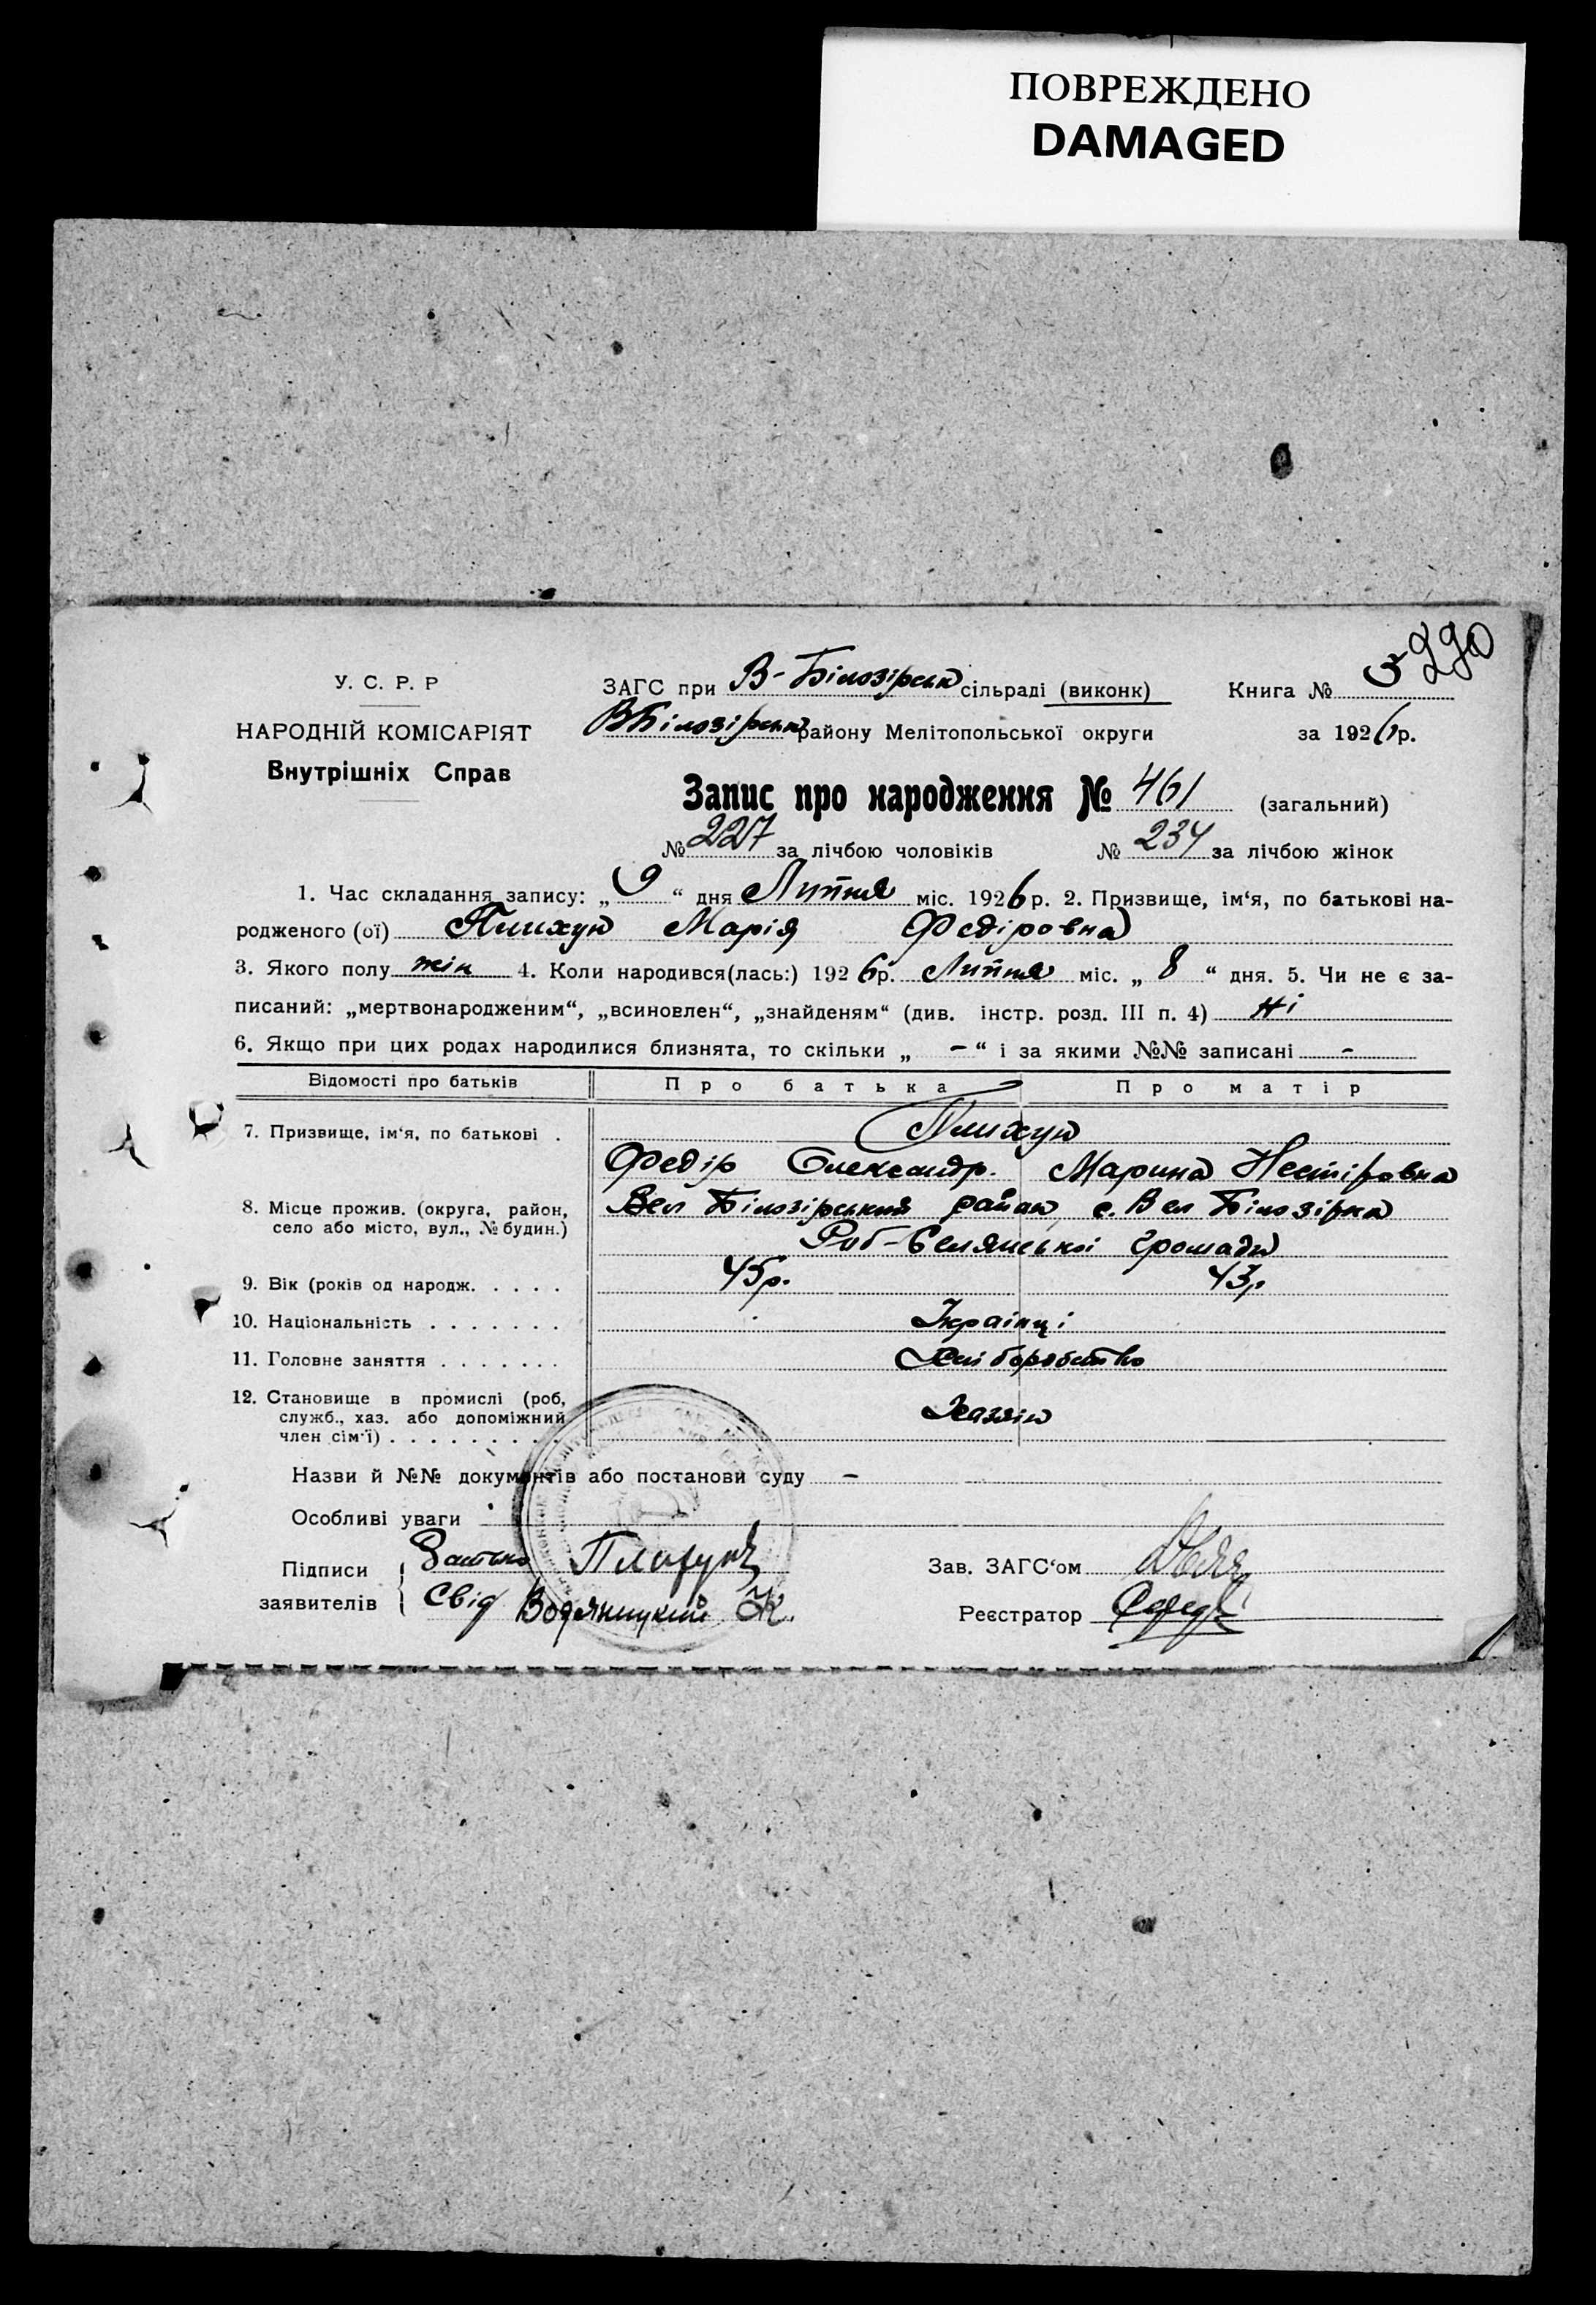 ПОВРЕЖДЕНО
DAMAGED
290
У. С. Р. Р
ЗАГС при В-Білозірськ сільраді (виконк) Книга № 5
НАРОДНІЙ КОМІСАРІЯТ
ВБілозірськ району Мелітопольської округи за 1926р.
Внутрішніх Справ
Запис про народження № 461 (загальний)
№ 227 за лічбою чоловіків № 234 за лічбою жінок
1. Час складання запису: „ 9 “ дня Липня міс. 1926 р. 2. Призвище, ім‘я, по батькові на-
родженого (ої) Плихун Марія Федіровна
3. Якого полу жін 4. Коли народився(лась:) 1926р. Липня міс. „ 8 “ дня. 5. Чи не є за-
писаний: „мертвонародженим“, „всиновлен“, „знайденям“ (див. інстр. розд. III п. 4) ні
6. Якщо при цих родах народилися близнята, то скільки „ - “ і за якими №№ записані -
Відомості про батьків Про батька Про матір
7. Призвище, ім‘я, по батькові . Плихун
Федір Олександр. Марина Нестіровна
8. Місце прожив. (округа, район, Вел Білозірський район, с. Вел Білозірка
село або місто, вул., № будин.)
Роб-Селянської громади
9. Вік (років од народж. . . . . 45р. 43р
10. Національність . . . . . . . Українці
11. Головне заняття . . . . . . . Хліборобство
12. Становище в промислі (роб, служб., хаз. або допоміжний
член сім‘ї) . . . . . . . . . Хазяін
Назви й №№ документів або постанови суду -
Особливі уваги
Підписи Батько Зав. ЗАГС‘ом
заявителів Свід Водяницкий К. Реєстратор